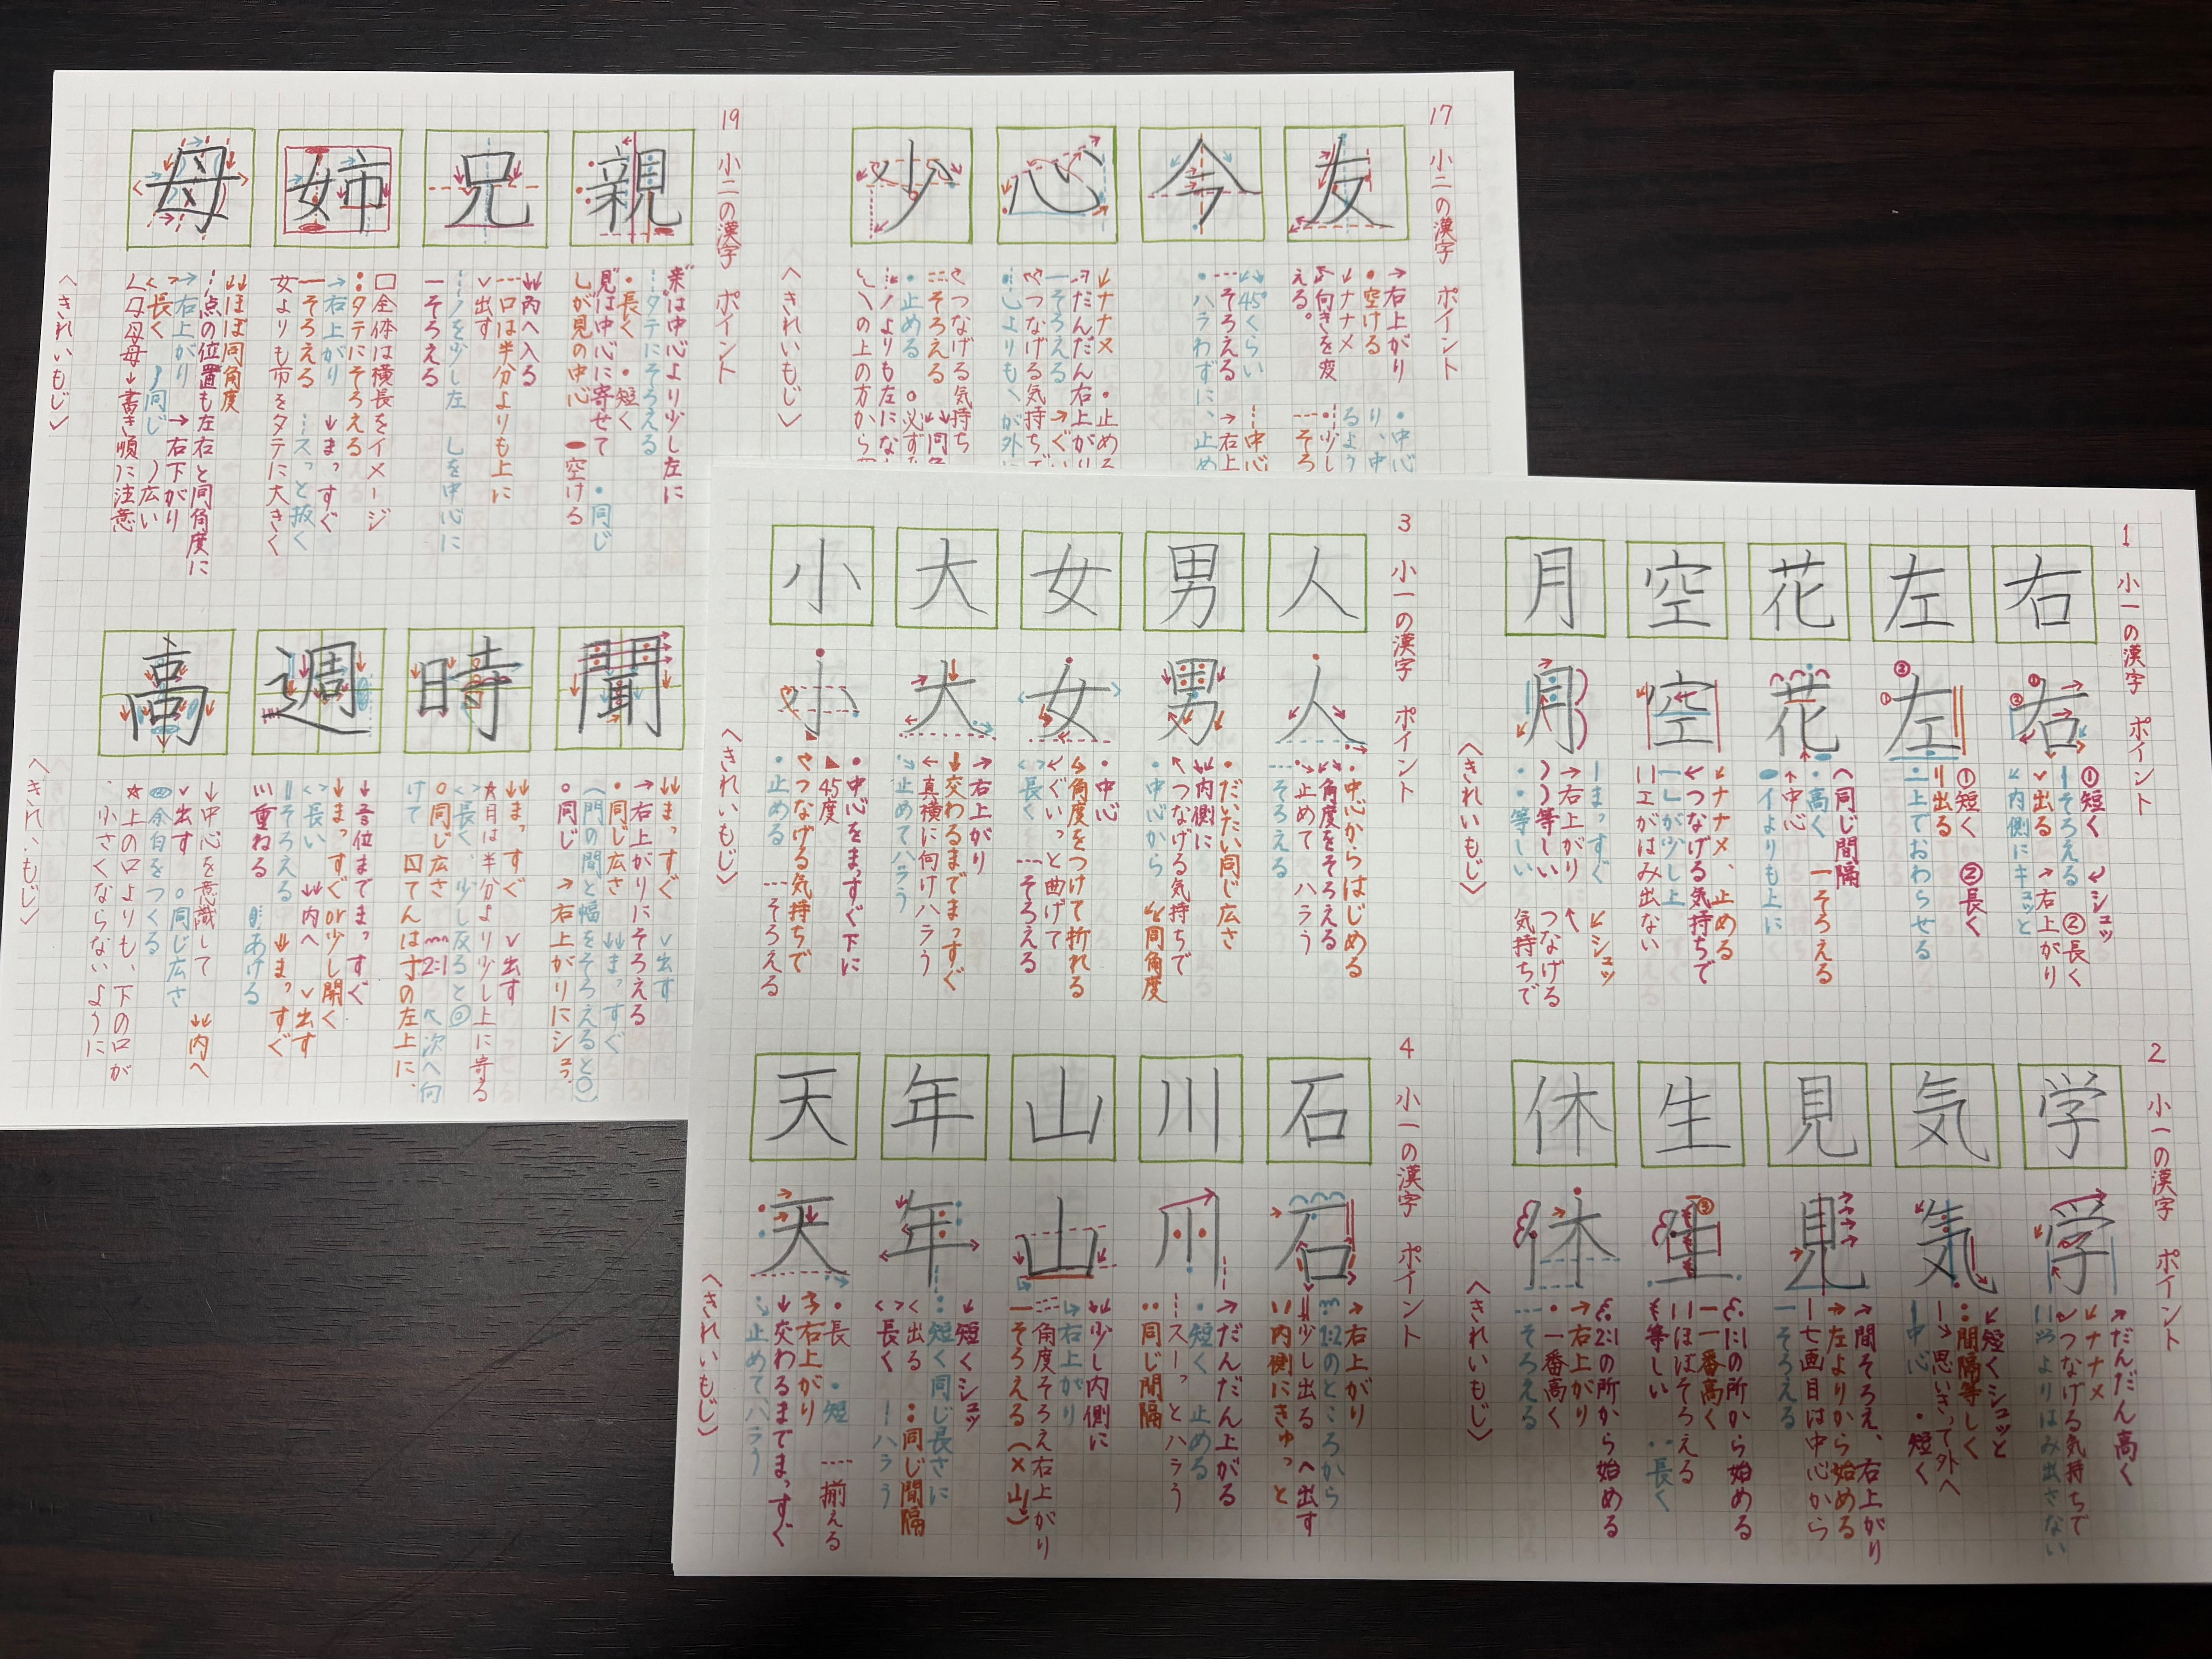 17 小二の漢字 ポイント
友
今
心
少
→右上がり
・空ける
↙ナナメ
↖向きを変
える。
・中心
↙↘45°くらい
---そろえる
・ハラわずに、止め
---中心
→右上
↙ナナメ
・止める
だんだん右上がり
一そろえる
つなげる気持ちで
つなげる気持ち
そろえる
・止める
ノよりも左に
の上の方から
〈きれいもじ〉
19 小二の漢字 ポイント
親
兄
姉
母
亲は中心より少し左に
タテにそろえる
・長く ・短く ・同じ
見は中心に寄せて ー空ける
しが見の中心
↓↓内へ入る
---口は半分よりも上に
∨出す
ノを少し左 しを中心に
一そろえる
□全体は横長をイメージ
:タテにそろえる
→右上がり ↓まっすぐ
一そろえる スっと抜く
女よりも市をタテに大きく
↓↓ほぼ同角度
点の位置も左右と同角度に
→右上がり →右下がり
<>長く 同じ )広い
く母母母→書き順に注意
〈きれいもじ〉
聞
時
週
高
↓↓まっすぐ ∨出す
→右上がりにそろえる
・同じ広さ ↓↓まっすぐ
(門の間と幅をそろえると〇)
〇同じ →右上がりにシュッ
↓↓まっすぐ ∨出す
☆月は半分より少し上に寄る
<>長く、少し反ると◎
〇同じ広さ 2:1 ↖次へ向
けて 口てんは寸の左上に、
↓まっすぐor少し開く
<>長い ↓↓内へ ∨出す
‖そろえる ↓まっすぐ
重ねる あける
↓中心を意識して ↓↓内へ
∨出す 〇同じ広さ
余白をつくる
☆上の口よりも、下の口が
小さくならないように
〈きれいもじ〉
1 小一の漢字 ポイント
右
左
花
空
月
右
左
花
空
月
①短く ↙シュッ
一そろえる ②長く
∨出る →右上がり
↙内側にキュッと
①短く ②長く
‖出る
・上でおわらせる
⌒同じ間隔
・高く 一そろえる
↑中心
イよりも上に
↙ナナメ、止める
↙つなげる気持ちで
一しが少し上
‖エがはみ出ない
｜まっすぐ ↙シュッ
→右上がり ↖つなげる
))等しい 気持ちで
・・等しい
〈きれいもじ〉
2 小一の漢字 ポイント
学
気
見
生
休
学
気
見
生
休
↗だんだん高く
↙ナナメ
↙つなげる気持ちで
‖よりはみ出さない
↙短くシュッと
:間隔等しく
思いきって外へ
｜中心 ・短く
→間そろえ、右上がり
→左よりから始める
｜七画目は中心から
一そろえる
2:1の所から始める
一一番高く
‖ほぼそろえる
等しい ・・長く
2:1の所から始める
→右上がり
・一番高く
---そろえる
〈きれいもじ〉
3 小一の漢字 ポイント
人
男
女
大
小
人
男
女
大
小
・中心からはじめる
↙↘角度をそろえる
・→止めて ハラう
---そろえる
・だいたい同じ広さ
↓↓内側に
↖つなげる気持ちで
・中心から ↙↙同角度
・中心
角度をつけて折れる
ぐいっと曲げて
<>長く ---そろえる
→右上がり
↓交わるまでまっすぐ
←真横に向けハラう
↘止めてハラう
・中心をまっすぐ下に
45度
つなげる気持ちで
・止める ---そろえる
〈きれいもじ〉
4 小一の漢字 ポイント
石
川
山
年
天
石
川
山
年
天
→右上がり
1:2のところから
‖少し出る ヘ出す
内側にきゅっと
↗だんだん上がる
・短く 止める
スーっとハラう
・・同じ間隔
↓↓少し内側に
右上がり
角度そろえ右上がり
一そろえる(×山)
↙短くシュッ
:短く同じ長さに
<出る :同じ間隔
<>長く ｜ハラう
・長 ・短 ---揃える
→右上がり
↓交わるまでまっすぐ
↘止めて、ハラう
〈きれいもじ〉